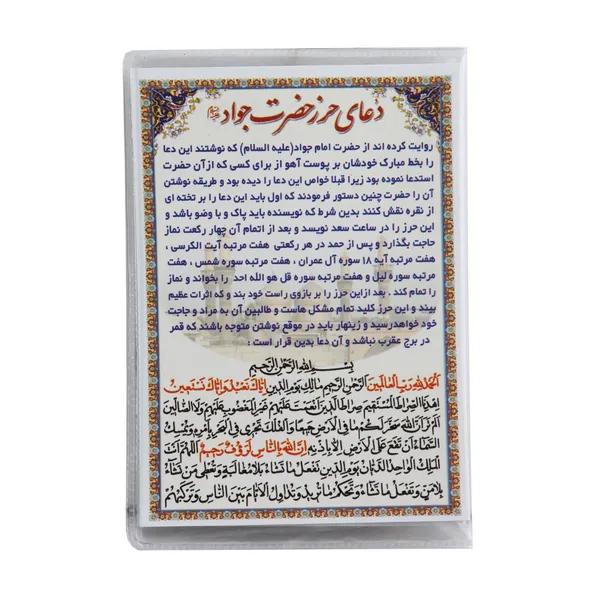 دعای حرز حضرت جواد
روایت کرده اند از حضرت امام جواد(علیه السلام) که نوشتند این دعا
را بخط مبارک خودشان بر پوست آهو از برای کسی که ازآن حضرت
استدعا نموده بود زیرا قبلا خواص این دعا را دیده بود و طریقه نوشتن
آن را حضرت چنین دستور فرمودند که اول باید این دعا را بر تخته ای
از نقره نقش کنند بدین شرط که نویسنده باید پاک و با وضو باشد و
این حرز را در ساعت سعد نویسد و بعد از اتمام آن چهار رکعت نماز
حاجت بگذارد و پس از حمد در هر رکعتی هفت مرتبه آیت الکرسی ،
هفت مرتبه آیه ۱۸ سوره آل عمران ، هفت مرتبه سوره شمس ، هفت
مرتبه سوره لیل و هفت مرتبه سوره قل هو الله احد را بخواند و نماز
را تمام کند . بعد ازاین حرز را بر بازوی راست خود بند و که اثرات عظیم
بیند و این حرز کلید تمام مشکل هاست و طالبین آن به مراد و حاجت
خود خواهدرسید و زینهار باید در موقع نوشتن متوجه باشند که قمر
در برج عقرب نباشد و آن دعا بدین قرار است :
بسم الله الرحمن الرحیم
الحمد لله رب العالمین الرحمن الرحیم مالک یوم الدین إیاک نعبد و إیاک نستعین
اهدنا الصراط المستقیم صراط الذین انعمت علیهم غیر المغضوب علیهم ولا الضالین
الم تر ان الله سخر لکم ما فی الارض جمیعا و الفلک تجری فی البحر بامره و یمسک
السماء ان تقع علی الارض الا باذنه ان الله بالناس لرؤف رحیم اللهم انت
الملک الواحد الدیان یوم الدین تفعل ما تشاء بلا مغالبة و تعطی من تشاء
بلا من و تفعل ما تشاء و تحکم ما ترید و تداول الایام بین الناس و ترکبهم